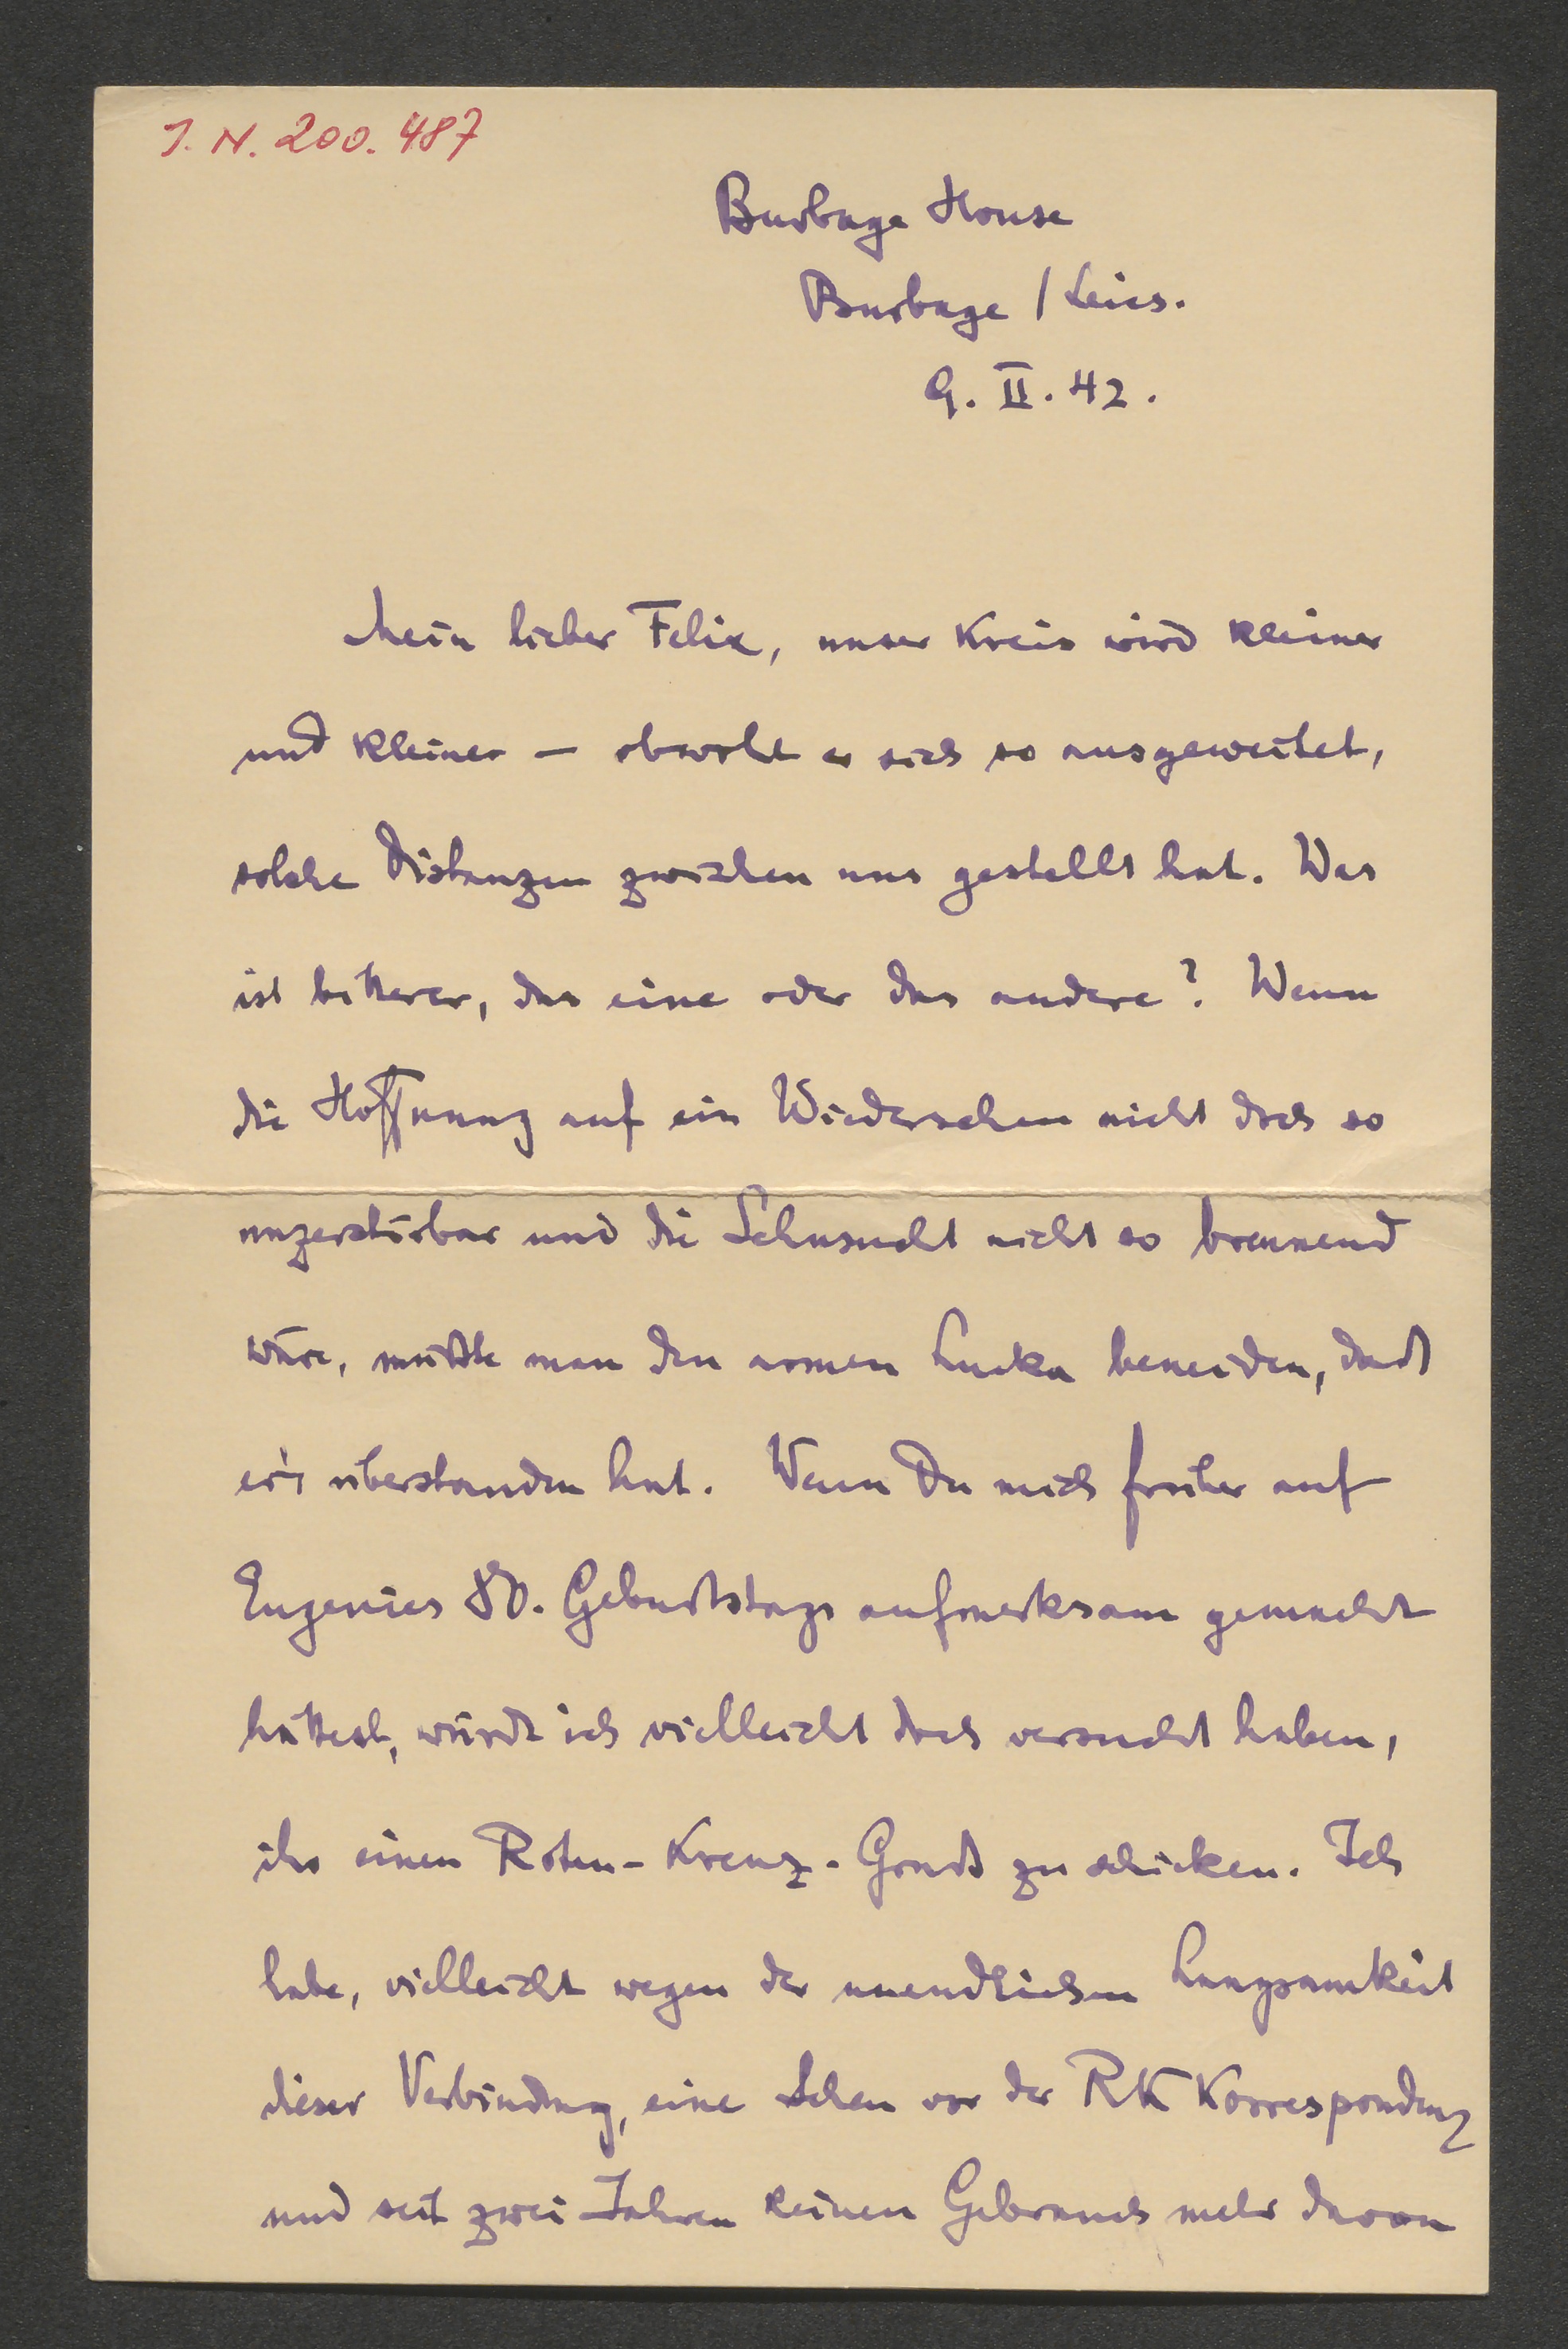 J. N. 200.487
Burbage House
Burbage / Leics.
9. II. 42.
Mein lieber Felix, unser Kreis wird kleiner
und kleiner — obwohl er sich so ausgeweitet,
solche Distanzen zwischen uns gestellt hat. Was
ist bitterer, das eine oder das andere? Wenn
die Hoffnung auf ein Wiedersehen nicht doch so
unzerstörbar und die Sehnsucht nicht so brennend
wäre, müßte man den armen Lucka beneiden, daß
er's überstanden hat. Wenn Du mich früher auf
Eugenies 80. Geburtstags aufmerksam gemacht
hättest, würde ich vielleicht doch versucht haben,
ihr einen Roten-Kreuz-Gruß zu schicken. Ich
habe, vielleicht wegen der unendlichen Langsamkeit
dieser Verbindung, eine Scheu vor der RK Korrespondenz
und seit zwei Jahren keinen Gebrauch mehr davon